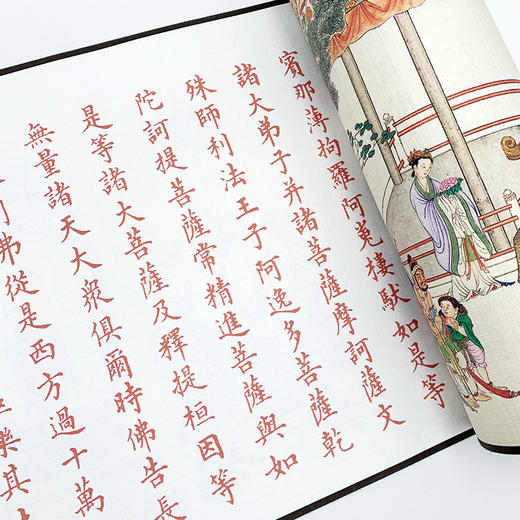 賓那薄拘羅阿㝹樓馱如是等
諸大弟子并諸菩薩摩訶薩文
殊師利法王子阿逸多菩薩乾
陀訶提菩薩常精進菩薩與如
是等諸大菩薩及釋提桓因等
無量諸天大眾俱爾時佛告長
弗從是西方過十萬
樂其